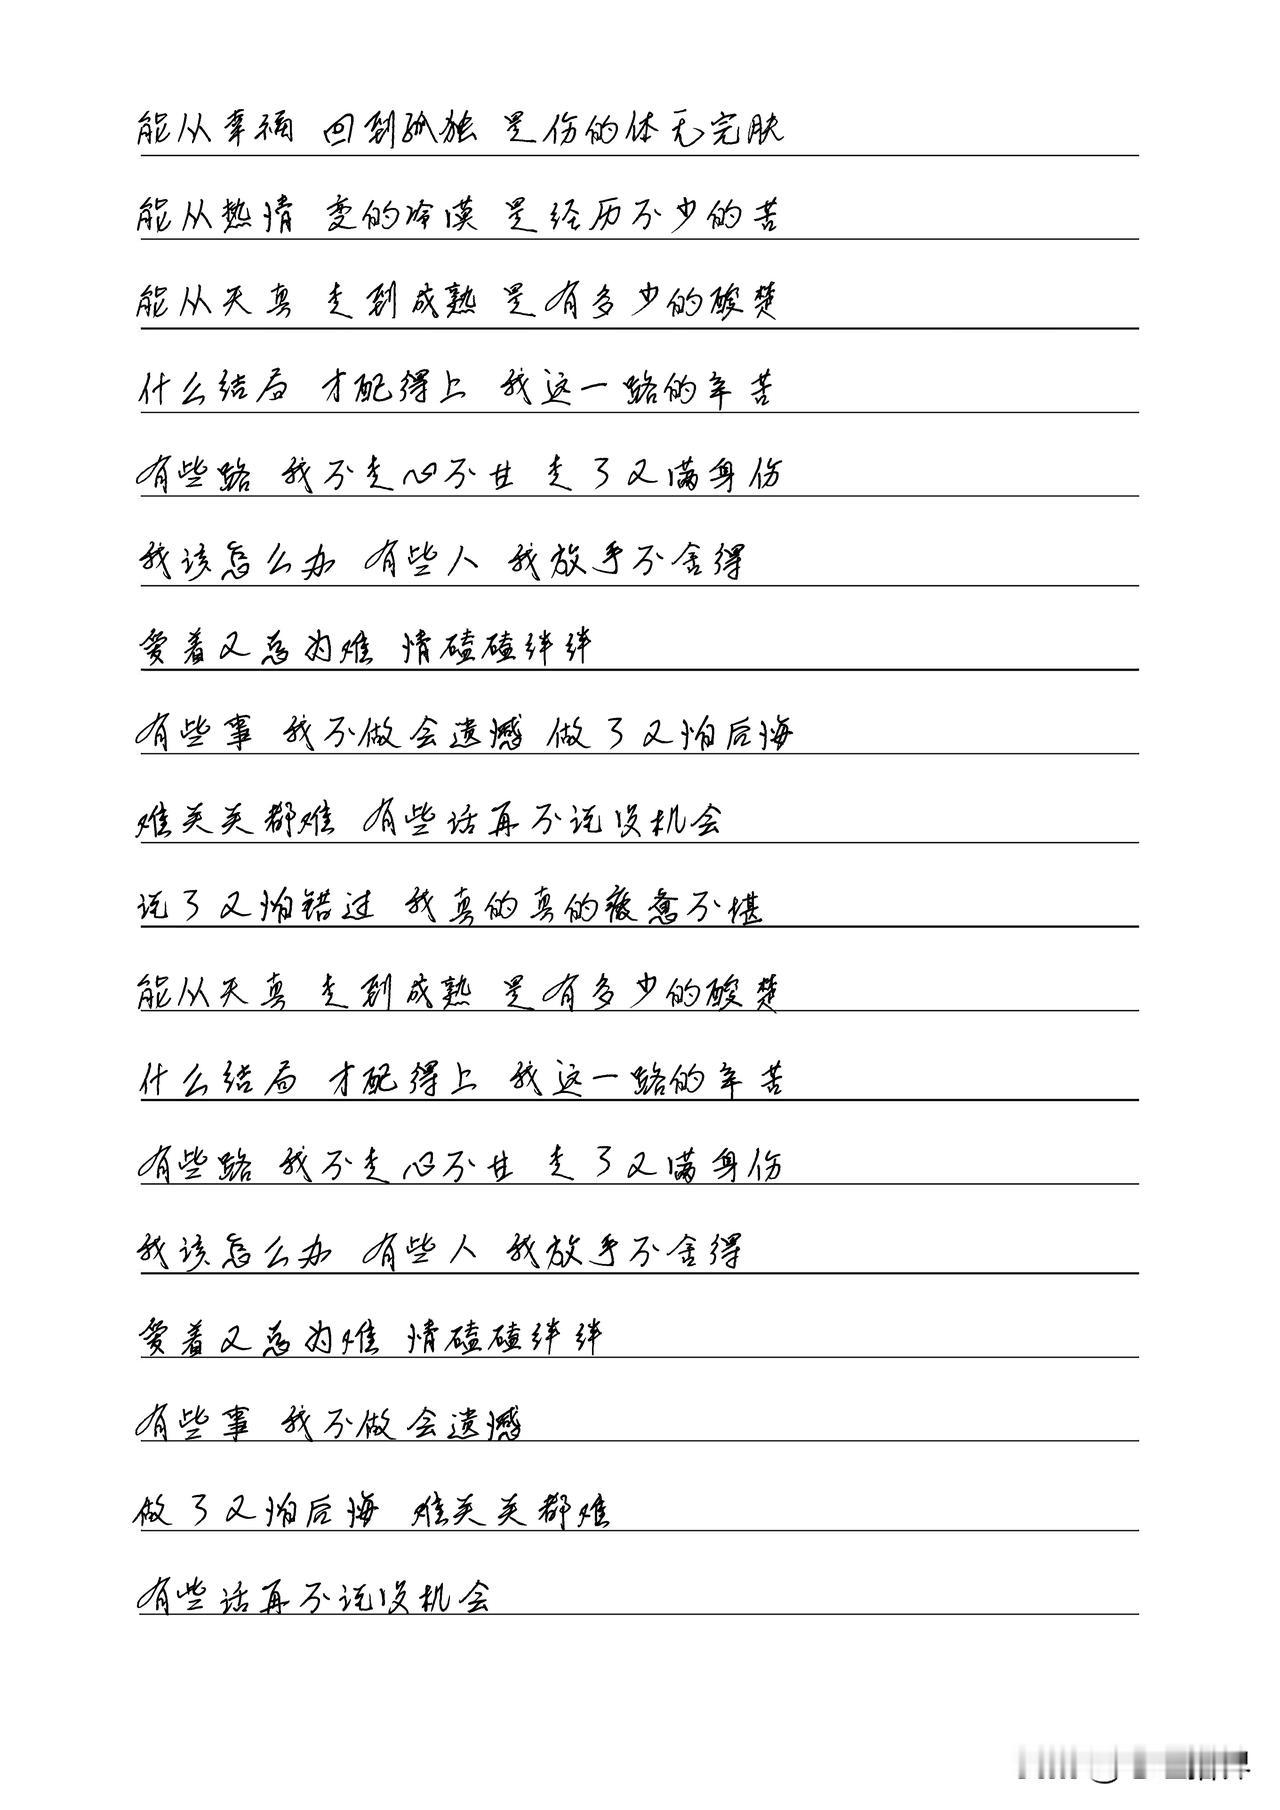 能从幸福 回到孤独 是伤的体无完肤
能从热情 变的冷漠 是经历不少的苦
能从天真 走到成熟 是有多少的酸楚
什么结局 才配得上 我这一路的辛苦
有些路 我不走心不甘 走了又满身伤
我该怎么办 有些人 我放手不舍得
爱着又总为难 情磕磕绊绊
有些事 我不做会遗憾 做了又怕后悔
难关关都难 有些话再不说没机会
说了又怕错过 我真的真的疲惫不堪
能从天真 走到成熟 是有多少的酸楚
什么结局 才配得上 我这一路的辛苦
有些路 我不走心不甘 走了又满身伤
我该怎么办 有些人 我放手不舍得
爱着又总为难 情磕磕绊绊
有些事 我不做会遗憾
做了又怕后悔 难关关都难
有些话再不说没机会